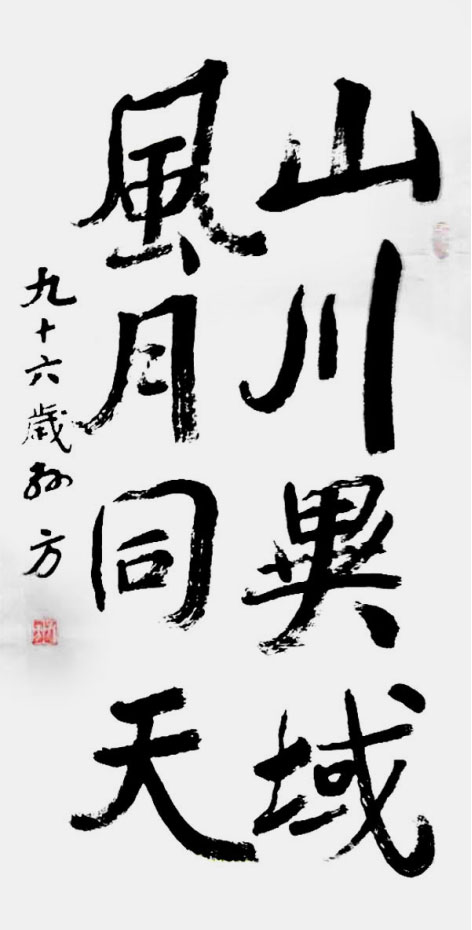 山川異域
風月同天
九十六歲孙方